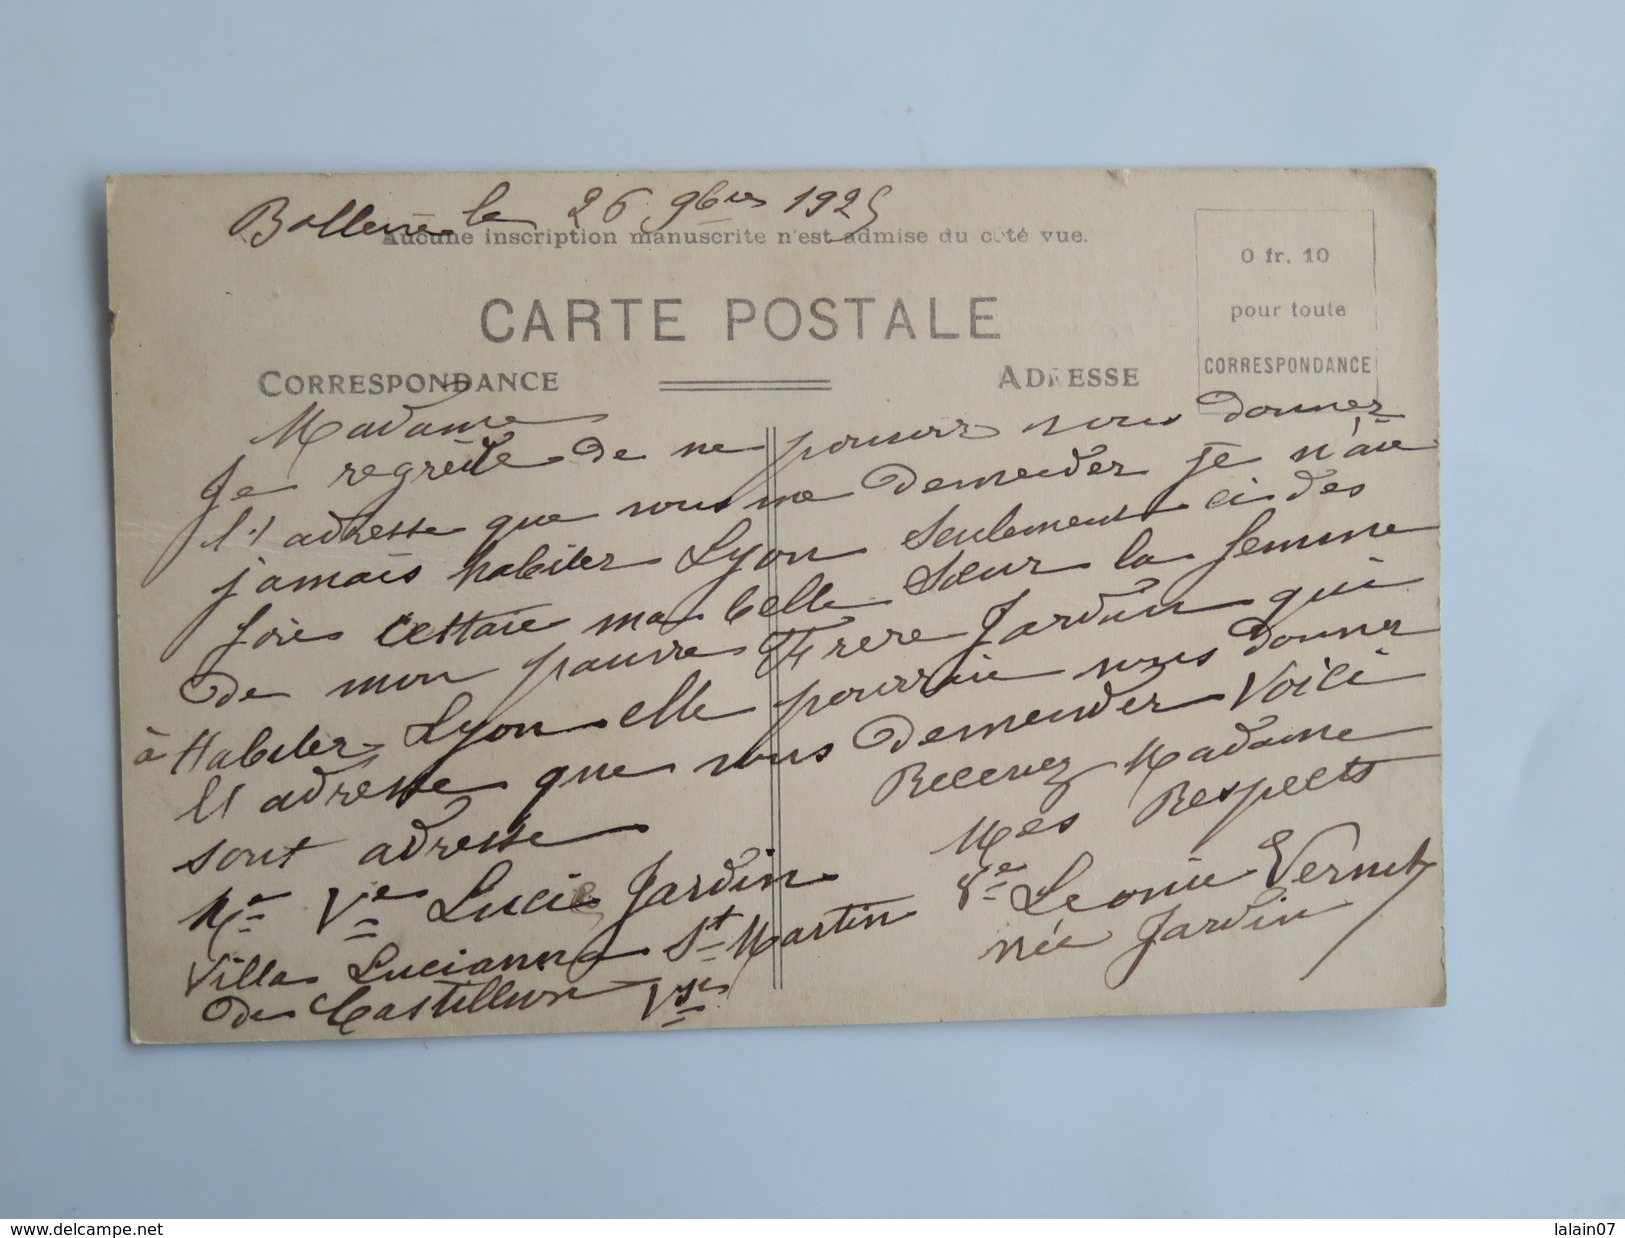 Bollene le 26 9bre 1925
Aucune inscription manuscrite n'est admise du côté vue.
0 fr. 10
pour toute
CORRESPONDANCE
CARTE POSTALE
CORRESPONDANCE
ADRESSE
Madame
Je regrette de ne pouvoir vous donner
l'adresse que vous me demender je n'aie
jamais habiter Lyon seulement ci des
fois cettaie ma belle Sœur la femme
de mon pauvre Frere Jardin qui
à Habiter Lyon elle pourraie vous donner
l'adresse que vous demender Voici
sont adresse
Me Ve Lucie Jardin
Villa Lucianna St Martin
de Castillon Vse
Recevez Madame
Mes Respects
Ve Leonie Vernet
née Jardin
delcampe.net
lalain07